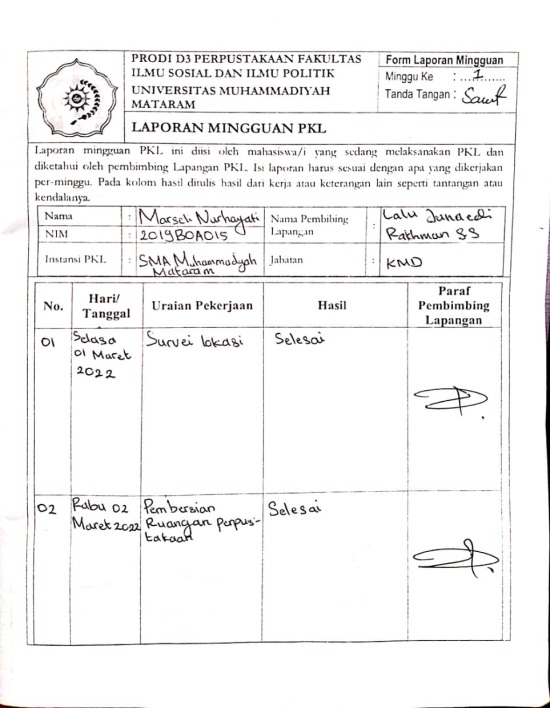 PRODI D3 PERPUSTAKAAN FAKULTAS
ILMU SOSIAL DAN ILMU POLITIK
UNIVERSITAS MUHAMMADIYAH
MATARAM
LAPORAN MINGGUAN PKL
Form Laporan Mingguan
Minggu Ke : ...1......
Tanda Tangan :
Laporan mingguan PKL ini diisi oleh mahasiswa/i yang sedang melaksanakan PKL dan
diketahui oleh pembimbing Lapangan PKL. Isi laporan harus sesuai dengan apa yang dikerjakan
per-minggu. Pada kolom hasil ditulis hasil dari kerja atau keterangan lain seperti tantangan atau
kendalanya.
Nama : Marseli Nurhayati
NIM : 2019B0A015
Nama Pembibing
Lapangan :
Lalu Junaedi
Rathman SS
Instansi PKL : SMA Muhammadyah
Mataram
Jabatan : KMD
No.
Hari/
Tanggal
Uraian Pekerjaan
Hasil
Paraf
Pembimbing
Lapangan
01
Selasa
01 Maret
2022
Survei lokasi
Selesai
02
Rabu 02
Maret 2022
Pembersian
Ruangan perpus-
takaan
Selesai